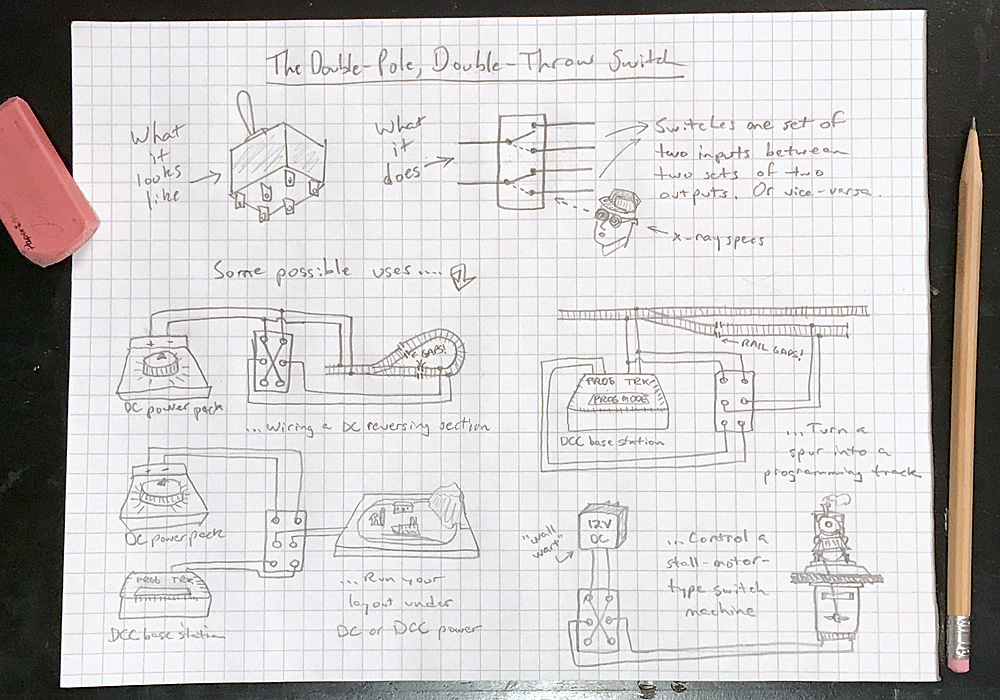 The Double-Pole, Double-Throw Switch
What
it
looks
like
What
it
does
Switches one set of
two inputs between
two sets of two
outputs. Or vice-versa.
x-ray specs
Some possible uses....
+ -
DC power pack
GAPS!
...Wiring a DC reversing section
RAIL GAPS!
PROG TRK
PROG MODE
DCC base station
...Turn a
spur into a
programming track
+ -
DC power pack
PROG TRK
DCC base station
...Run your
layout under
DC or DCC power
"wall
wart"
12V
DC
...Control a
stall-motor-
type switch
machine